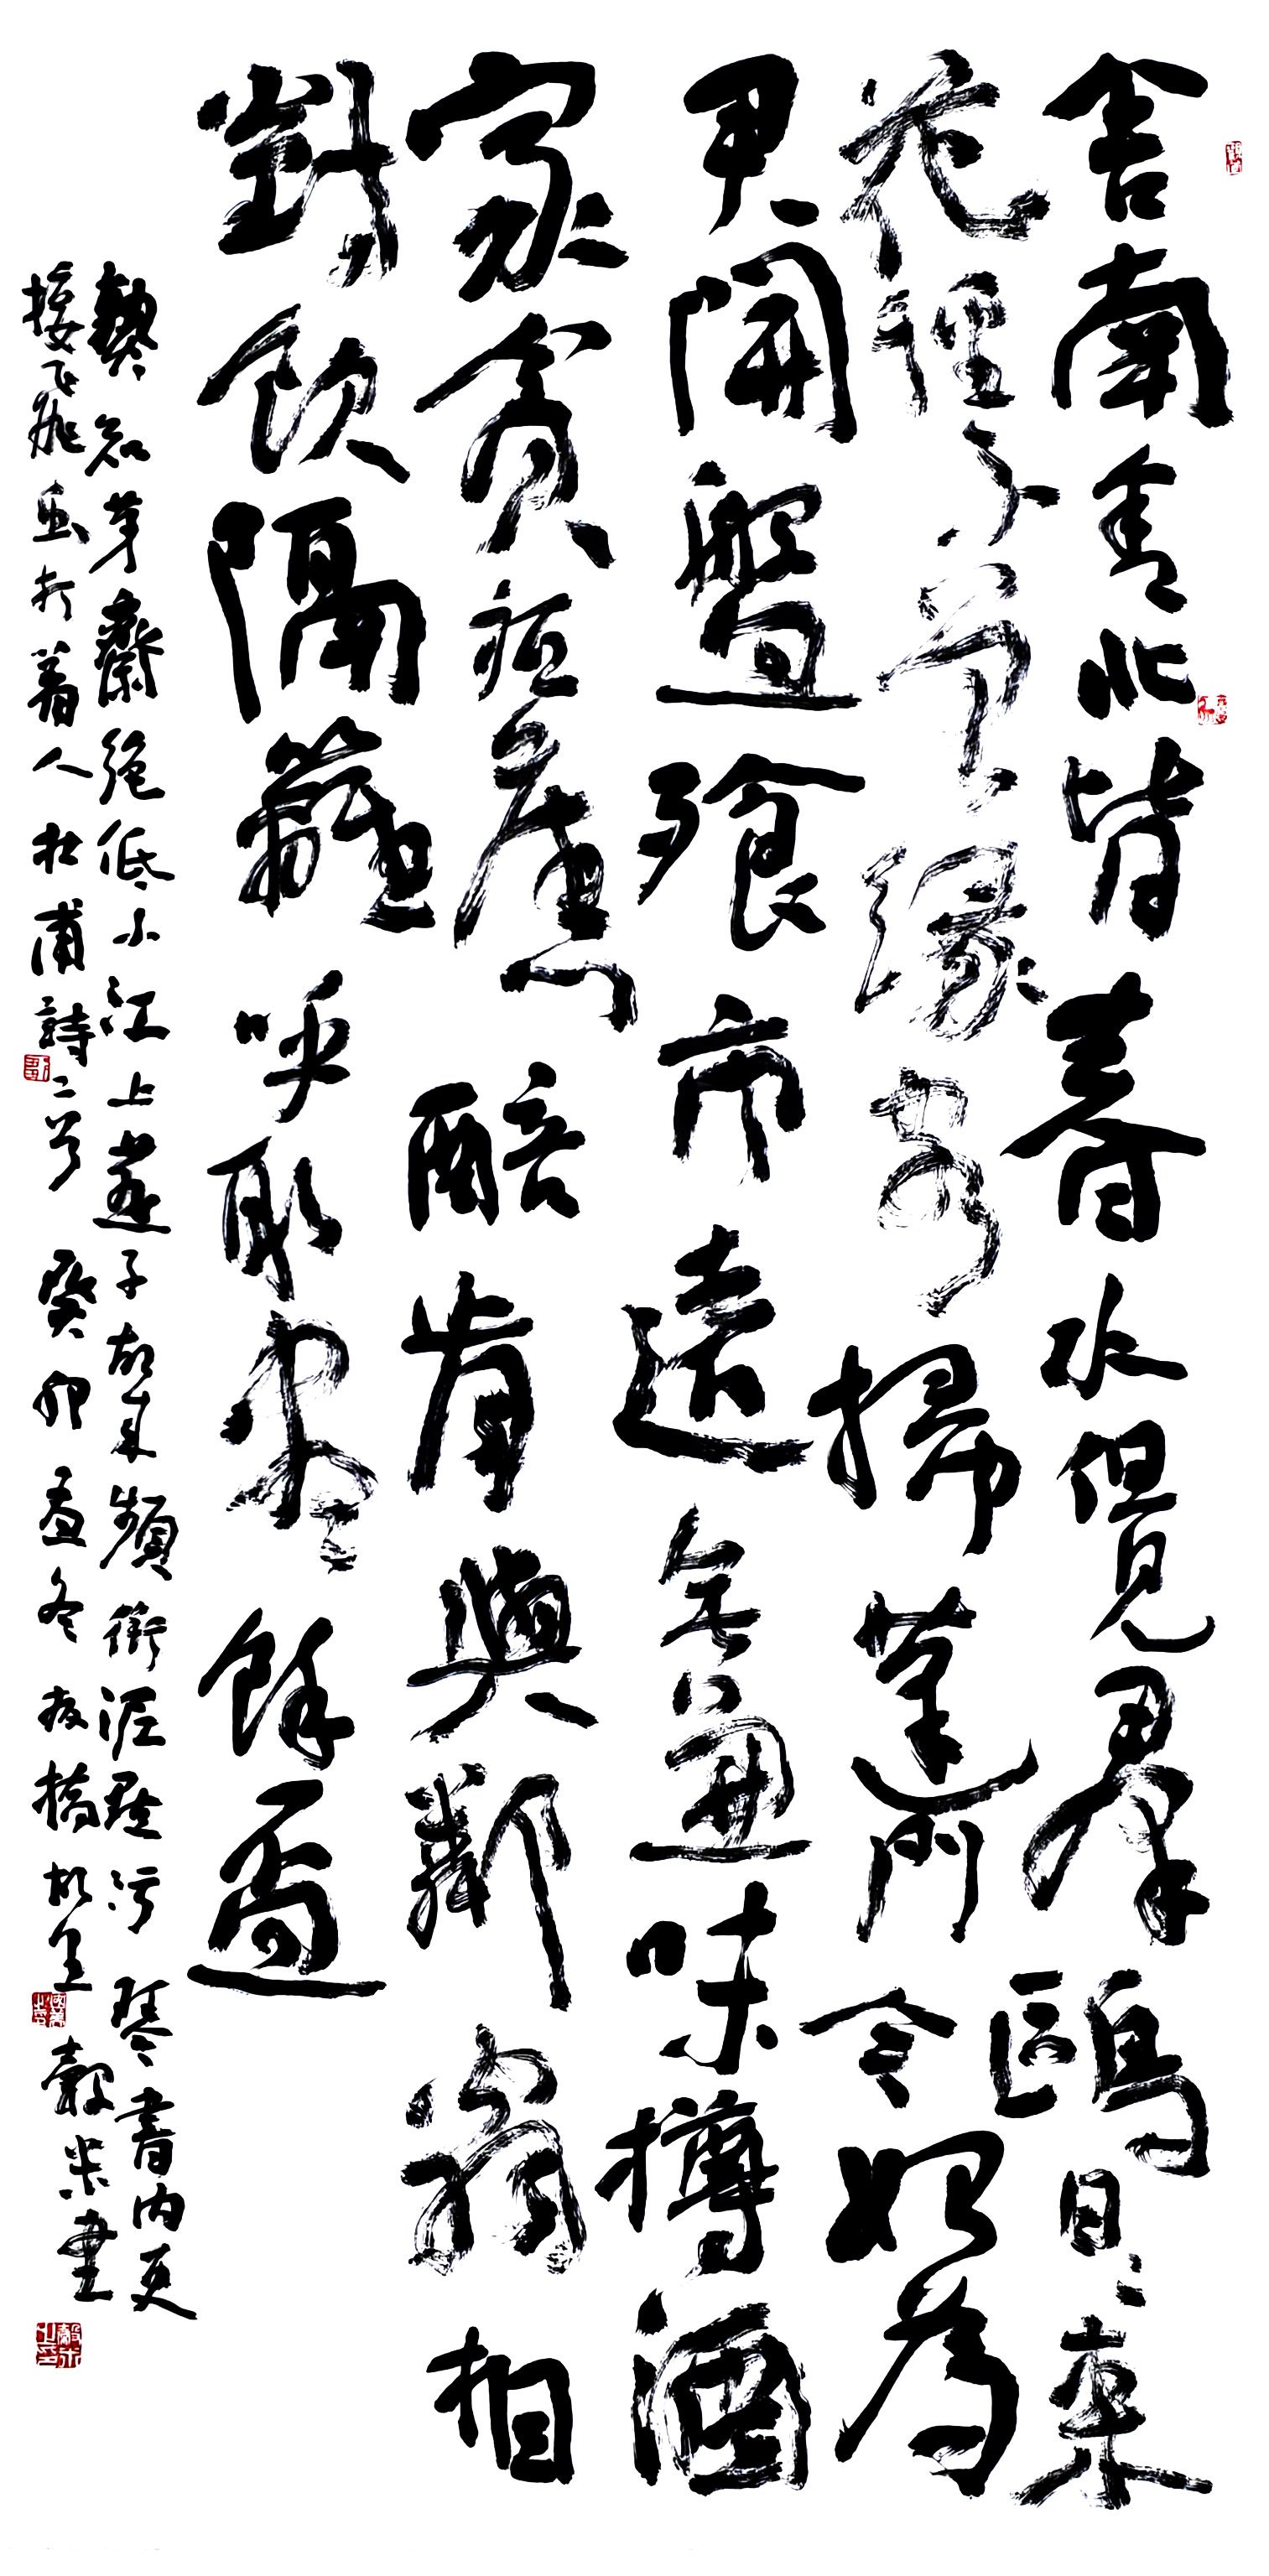 舍南舍北皆春水但見羣鷗日日來
花徑不曾緣客掃蓬門今始為
君開盤飧市遠無兼味樽酒
家貧秖舊醅肯與鄰翁相
對飲隔籬呼取盡餘盃
熟知茅齋絕低小江上燕子故來頻銜泥點污琴書內更
接飛虫打著人杜甫詩二首癸卯孟冬板橋故里穀米書